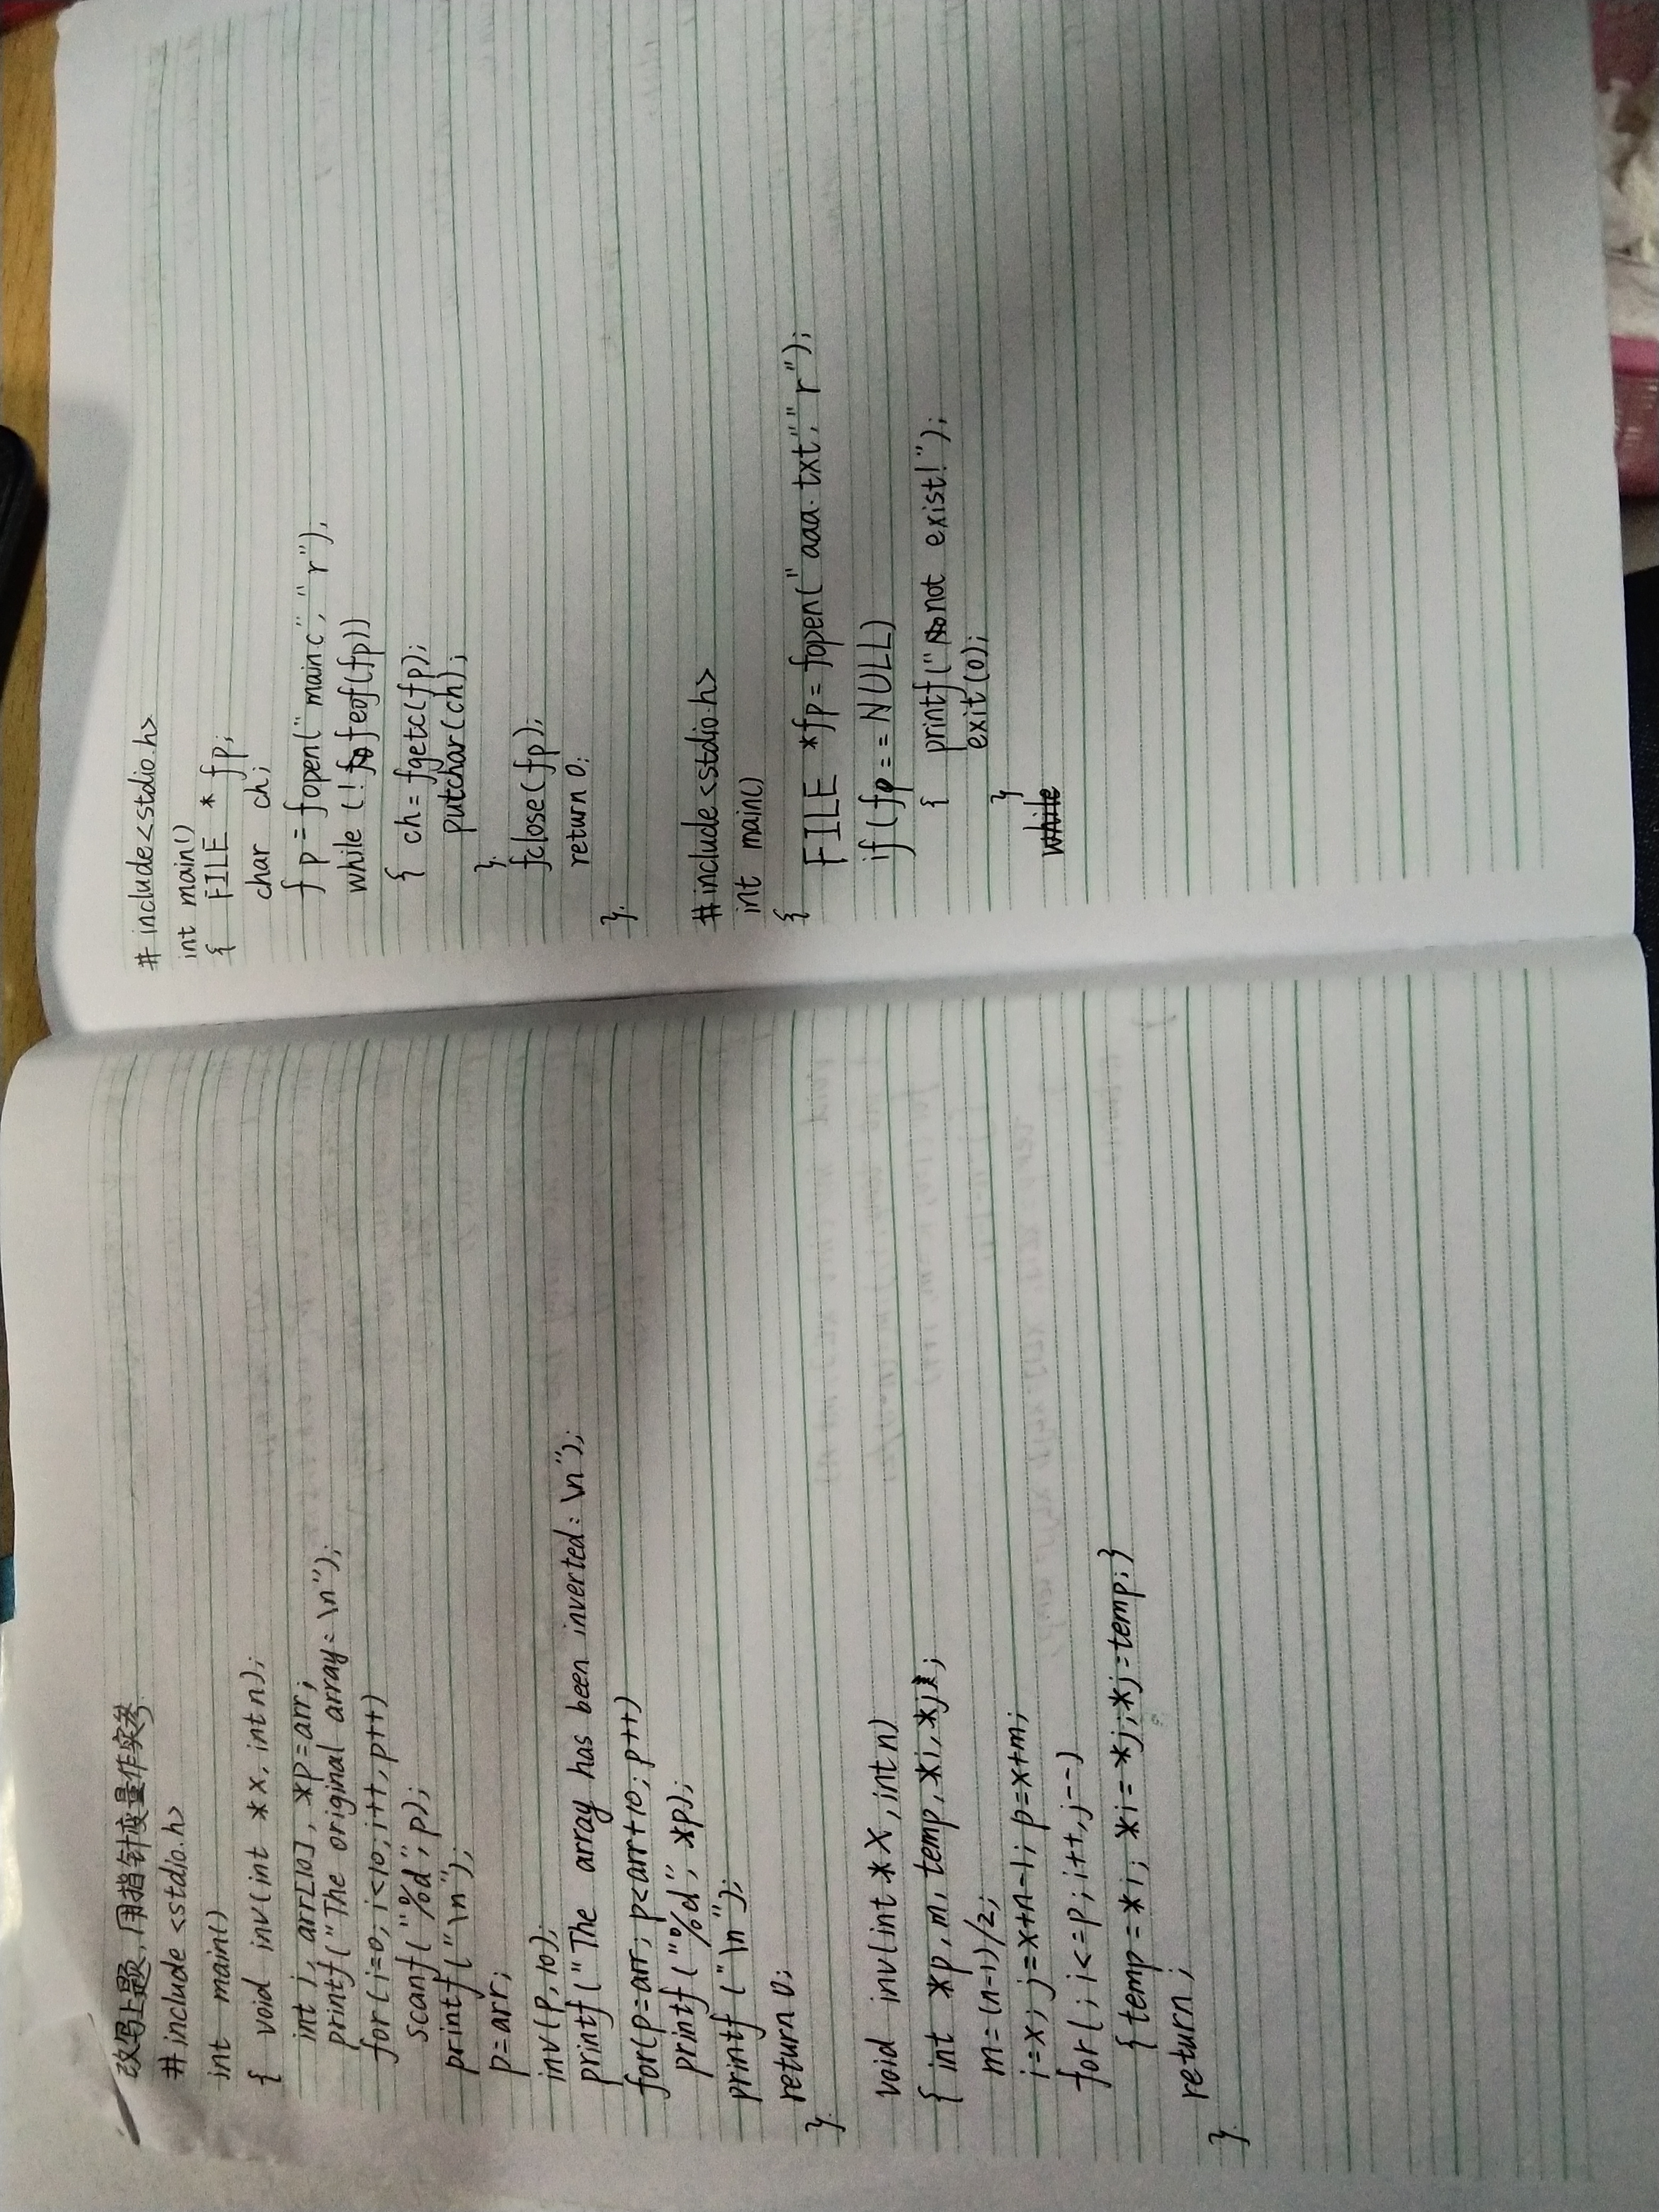 改写上题,用指针变量作实参.
#include <stdio.h>
int main()
{ void inv(int *x, int n);
int i, arr[10], *p=arr;
printf("The original array: \n");
for(i=0; i<10; i++, p++)
scanf("%d", p);
printf("\n");
p=arr;
inv(p, 10);
printf("The array has been inverted: \n");
for(p=arr; p<arr+10; p++)
printf("%d", *p);
printf("\n");
return 0;
}
void inv(int *x, int n)
{ int *p, m, temp, *i, *j;
m=(n-1)/2;
i=x; j=x+n-1; p=x+m;
for(; i<=p; i++, j--)
{temp=*i; *i=*j; *j=temp;}
return;
}
#include<stdio.h>
int main()
{ FILE * fp;
char ch;
fp=fopen("main.c", "r");
while (!feof(fp))
{ ch=fgetc(fp);
putchar(ch);
}
fclose(fp);
return 0;
}
#include<stdio.h>
int main()
{
FILE *fp=fopen("aaa.txt", "r");
if(fp==NULL)
{ printf("not exist!");
exit(0);
}
while